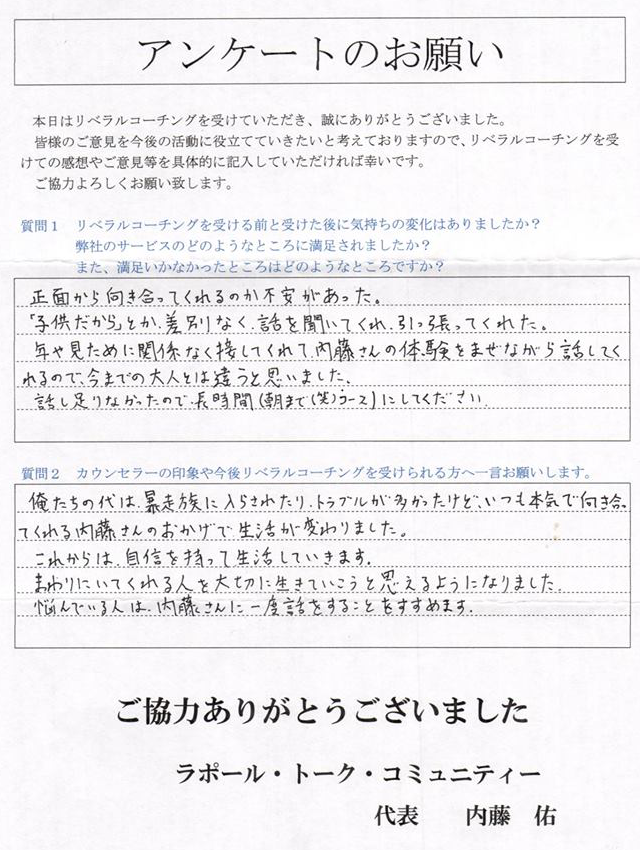 アンケートのお願い
本日はリベラルコーチングを受けていただき、誠にありがとうございました。
皆様のご意見を今後の活動に役立てていきたいと考えておりますので、リベラルコーチングを受
けての感想やご意見等を具体的に記入していただければ幸いです。
ご協力よろしくお願い致します。
質問１　リベラルコーチングを受ける前と受けた後に気持ちの変化はありましたか？
弊社のサービスのどのようなところに満足されましたか？
また、満足いかなかったところはどのようなところですか？
正面から向き合ってくれるのか不安があった。
「子供だから」とか、差別なく、話を聞いてくれ、引っ張ってくれた。
年や見ために関係なく接してくれて、内藤さんの体験をまぜながら話してく
れるので、今までの大人とは違うと思いました、
話し足りなかったので、長時間(朝まで(笑)コース)にしてください
質問２　カウンセラーの印象や今後リベラルコーチングを受けられる方へ一言お願いします。
俺たちの代は、暴走族に入らされたり、トラブルが多かったけど、いつも本気で向き合っ
てくれる内藤さんのおかげで生活が変わりました。
これからは、自信を持って生活していきます。
まわりにいてくれる人を大切に生きていこうと思えるようになりました。
悩んでいる人は、内藤さんに一度話をすることをすすめます。
ご協力ありがとうございました
ラポール・トーク・コミュニティー
代表　内藤　佑